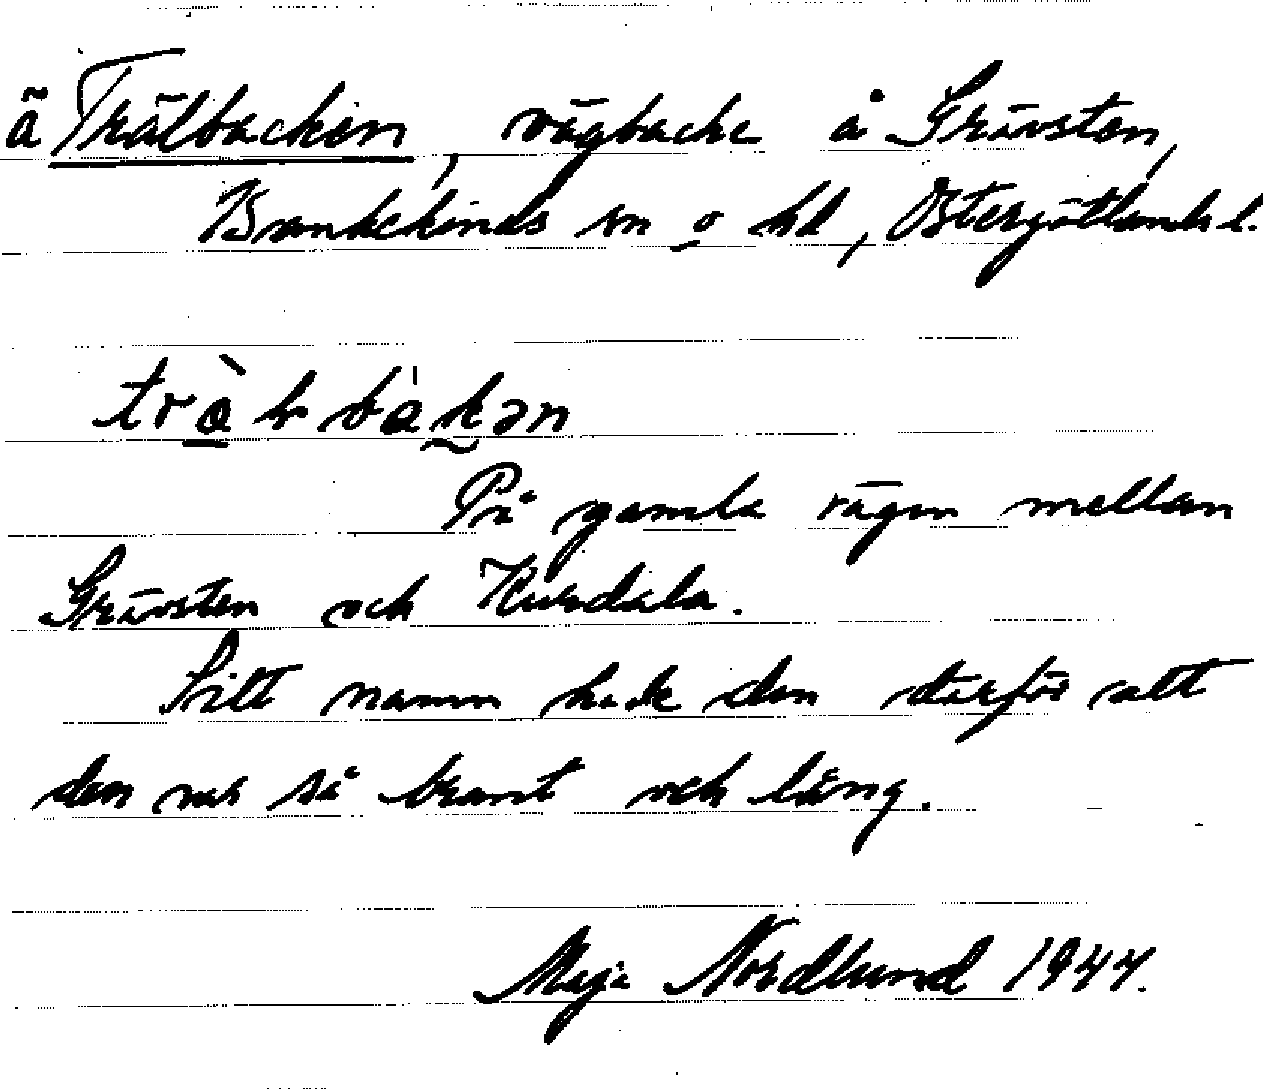 ä Trälbacken, vägbacke å Grävsten,
Bankekinds sn o hd, Östergötlands l.
På gamla vägen mellan
Grävsten och Hursdala.
Sitt namn hade den därför att
den var så brant och lång.
Maja Nordlund 1944.